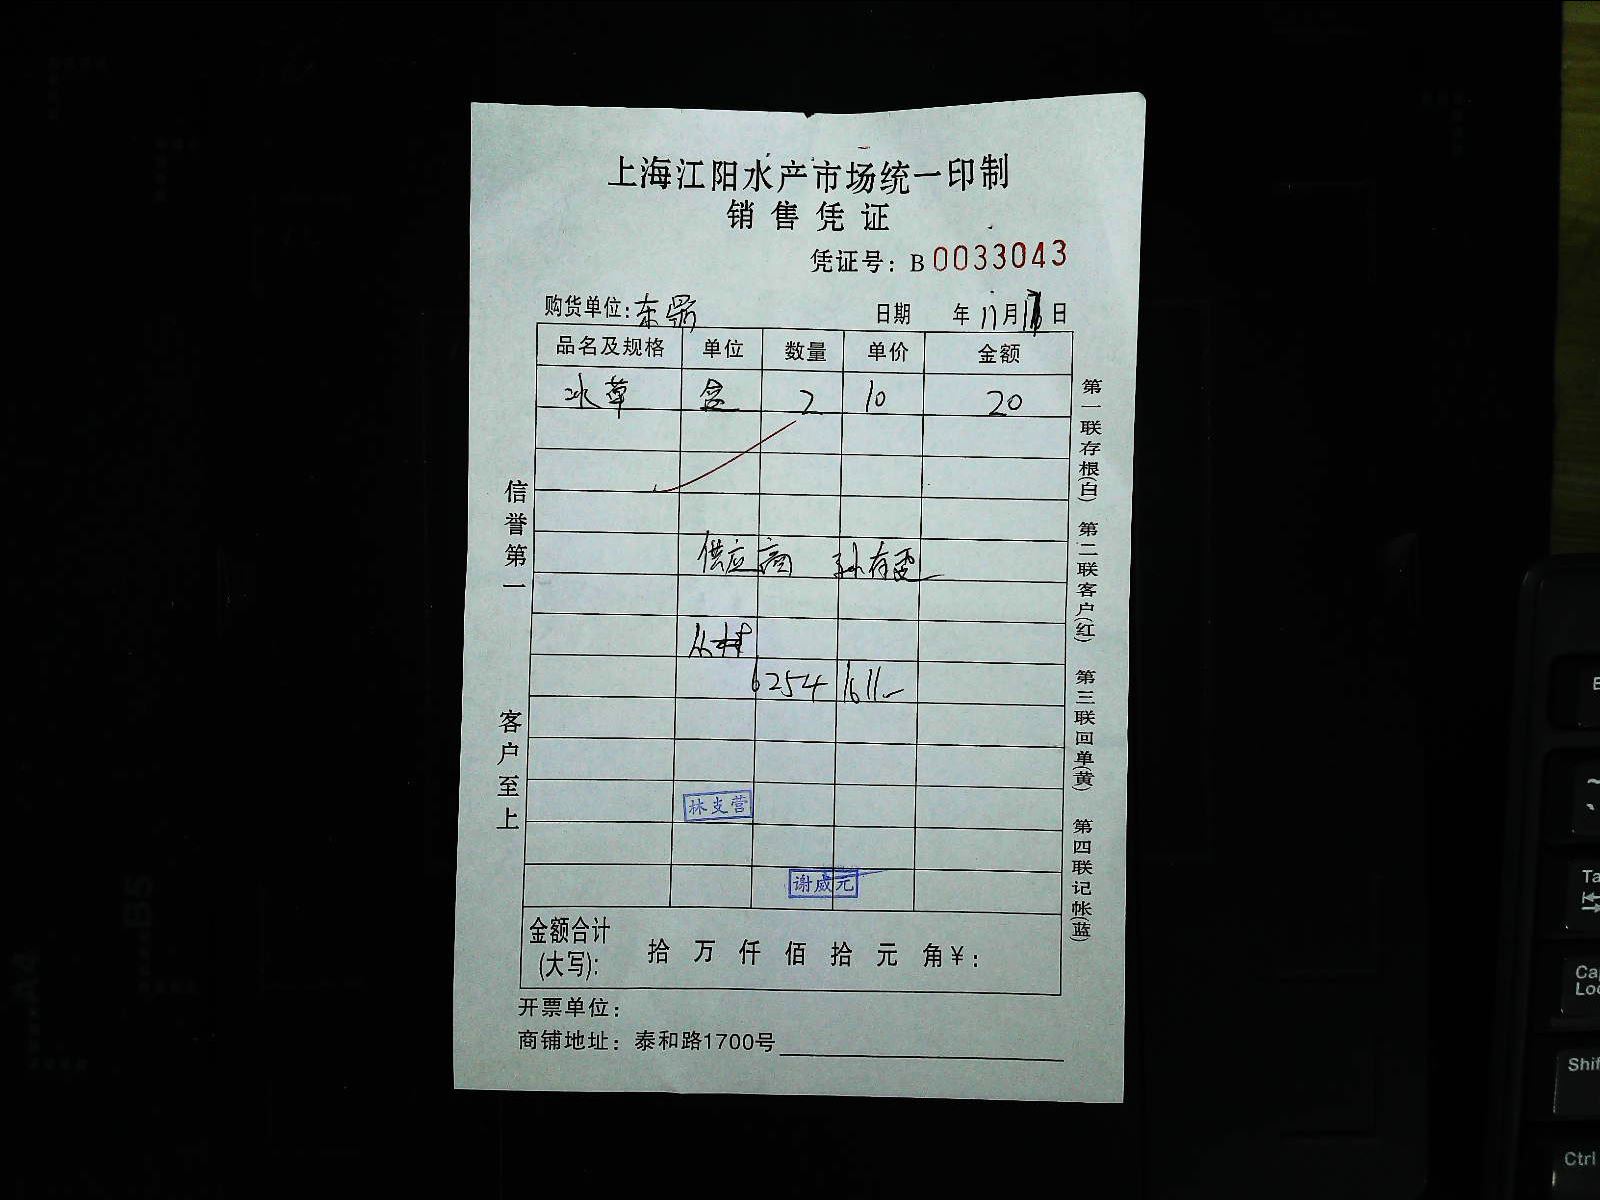 上海江阳水产市场统一印制
销售凭证
凭证号：B 0033043
购货单位：东 日期 年 11月 日
品名及规格 单位 数量 单价 金额
冰草 盒 2 10 20
供应商 孙有
6254 1611
林支营
谢威元
金额合计(大写)： 拾 万 仟 佰 拾 元 角 ¥：
开票单位：
商铺地址：泰和路1700号
信誉第一
客户至上
第一联存根(白) 第二联客户(红) 第三联回单(黄) 第四联记帐(蓝)
B5
A4
Ta
Ca
Loc
Shif
Ctrl